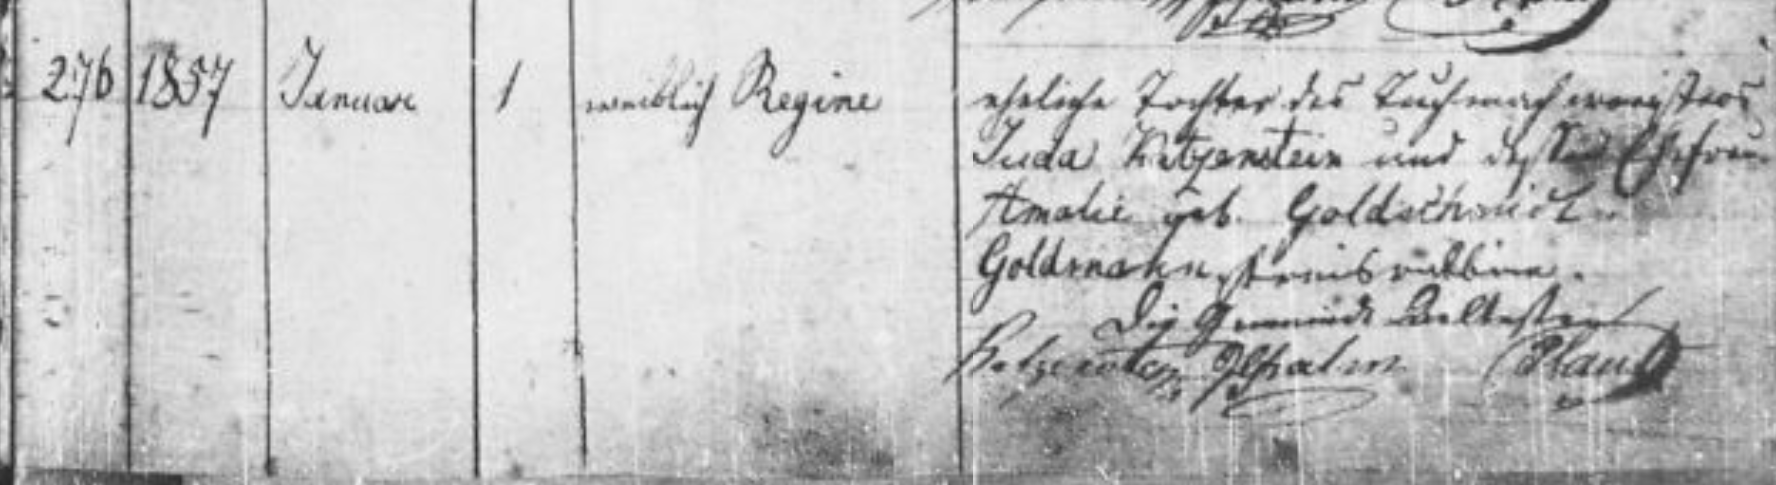 276 1857 Januar 1 weiblich Regine
eheliche Tochter des Tuchmachermeisters
Juda Katzenstein und dessen Ehefrau
Amalie geb. Goldschmidt.
Goldmann, Kreisrabbiner.
Die Gemeinde Aeltesten
Katzenstein Plaut